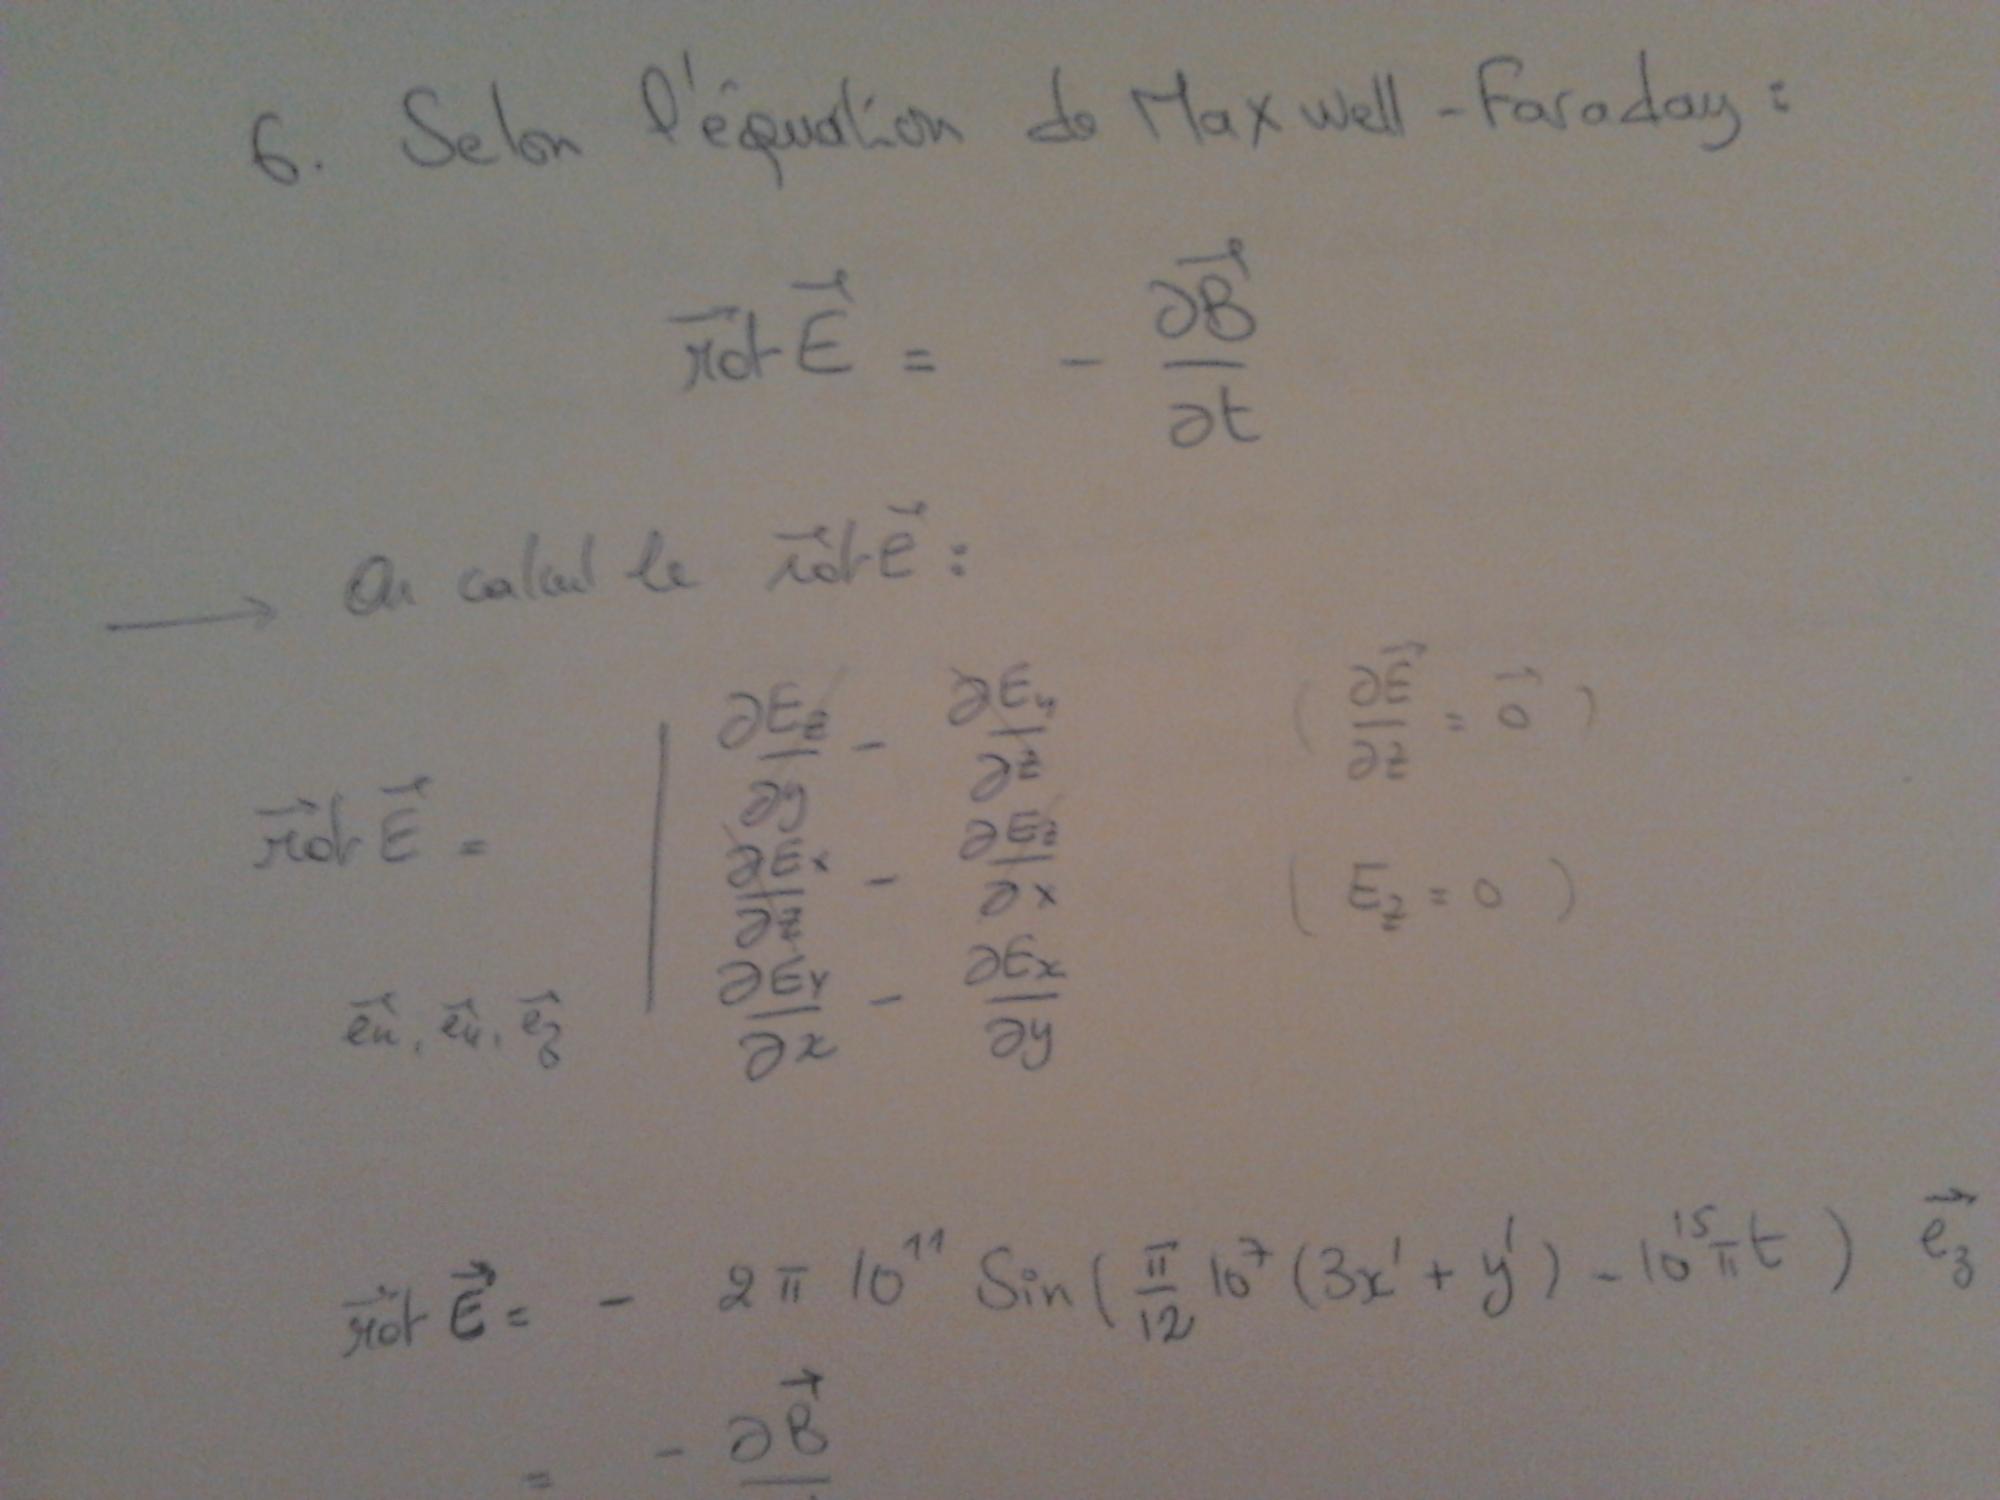 6. Selon l'équation de Maxwell-Faraday :
rot E = - ∂B/∂t
→ On calcul le rot E :
∂Ez/∂y - ∂Ey/∂z ( ∂E/∂z = 0 )
rot E = ∂Ex/∂z - ∂Ez/∂x ( Ez = 0 )
ex, ey, ez ∂Ey/∂x - ∂Ex/∂y
rot E = - 2π 10^11 Sin( π/12 10^7 (3x' + y') - 10^15 πt ) ez
= - ∂B